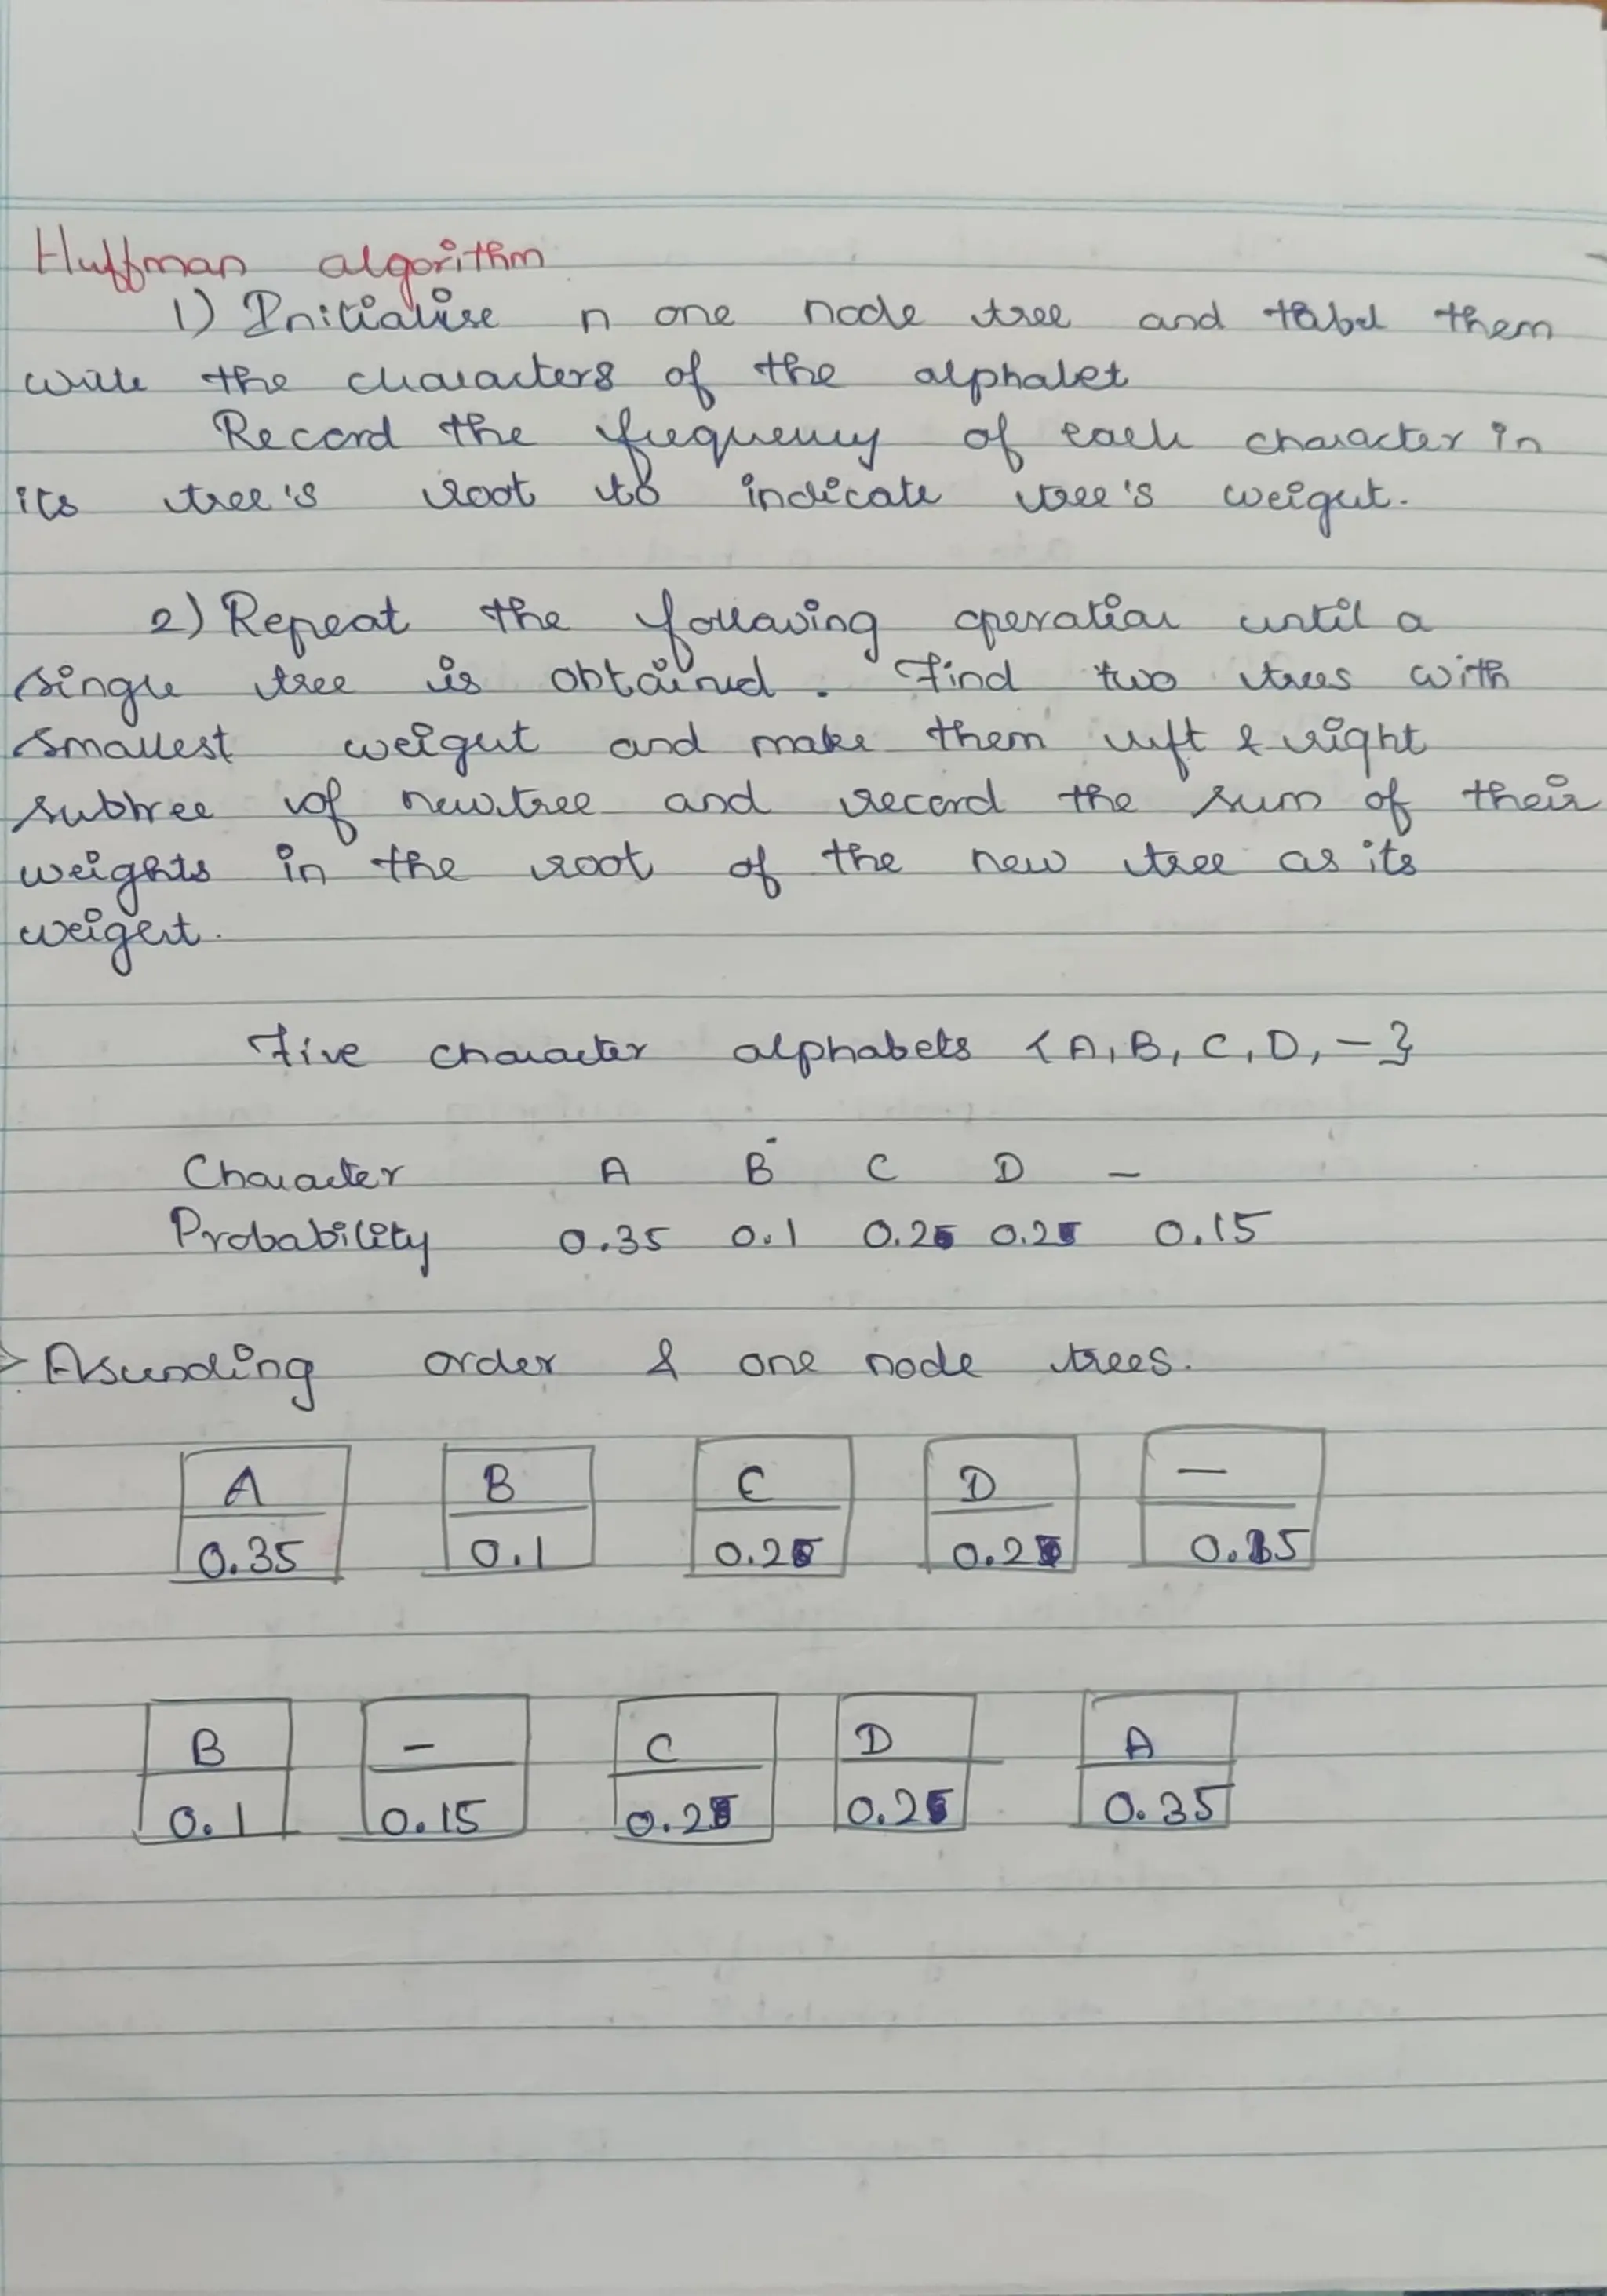 Huffman algorithm
1) Initialise n one node tree and label them
with the characters of the alphabet
Record the frequency of each character in
its tree's root to indicate tree's weight.
2) Repeat the following operation until a
single tree is obtained. Find two trees with
smallest weight and make them left & right
subtree of newtree and record the sum of their
weights in the root of the new tree as its
weight.
Five character alphabets {A, B, C, D, -}
Character A B C D -
Probability 0.35 0.1 0.2 0.2 0.15
> Ascending order & one node trees.
A B C D -
0.35 0.1 0.2 0.2 0.15
B - C D A
0.1 0.15 0.2 0.2 0.35